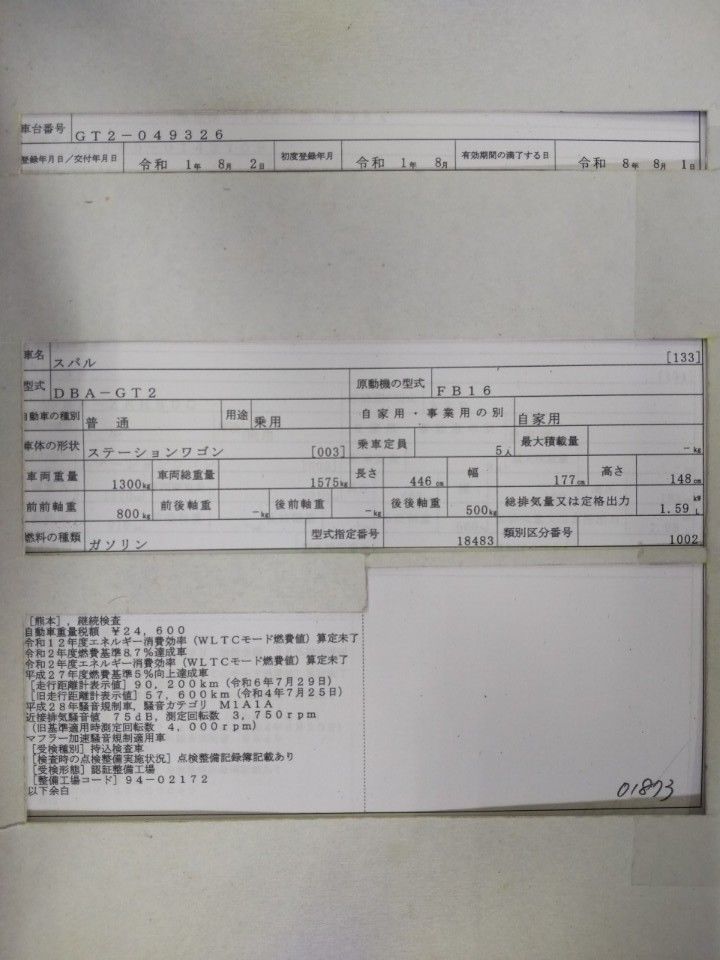 車台番号 GT2-049326
登録年月日/交付年月日 令和 1年 8月 2日 初度登録年月 令和 1年 8月 有効期間の満了する日 令和 8年 8月 1日
車名 スバル [133]
型式 DBA-GT2 原動機の型式 FB16
自動車の種別 普通 用途 乗用 自家用・事業用の別 自家用
車体の形状 ステーションワゴン [003] 乗車定員 5人 最大積載量 -kg
車両重量 1300kg 車両総重量 1575kg 長さ 446cm 幅 177cm 高さ 148cm
前前軸重 800kg 前後軸重 -kg 後前軸重 -kg 後後軸重 500kg 総排気量又は定格出力 1.59 kW L
燃料の種類 ガソリン 型式指定番号 18483 類別区分番号 1002
[熊本],継続検査
自動車重量税額 ¥24,600
令和12年度エネルギー消費効率(WLTCモード燃費値)算定未了
令和2年度燃費基準87%達成車
令和2年度エネルギー消費効率(WLTCモード燃費値)算定未了
平成27年度燃費基準5%向上達成車
[走行距離計表示値]90,200km(令和6年7月29日)
[旧走行距離計表示値]57,600km(令和4年7月25日)
平成28年騒音規制車,騒音カテゴリ M1A1A
近接排気騒音値 75dB,測定回転数 3,750rpm
(旧基準適用時測定回転数 4,000rpm)
マフラー加速騒音規制適用車
[受検種別]持込検査車
[検査時の点検整備実施状況]点検整備記録簿記載あり
[受検形態]認証整備工場
[整備工場コード]94-02172
以下余白
01873